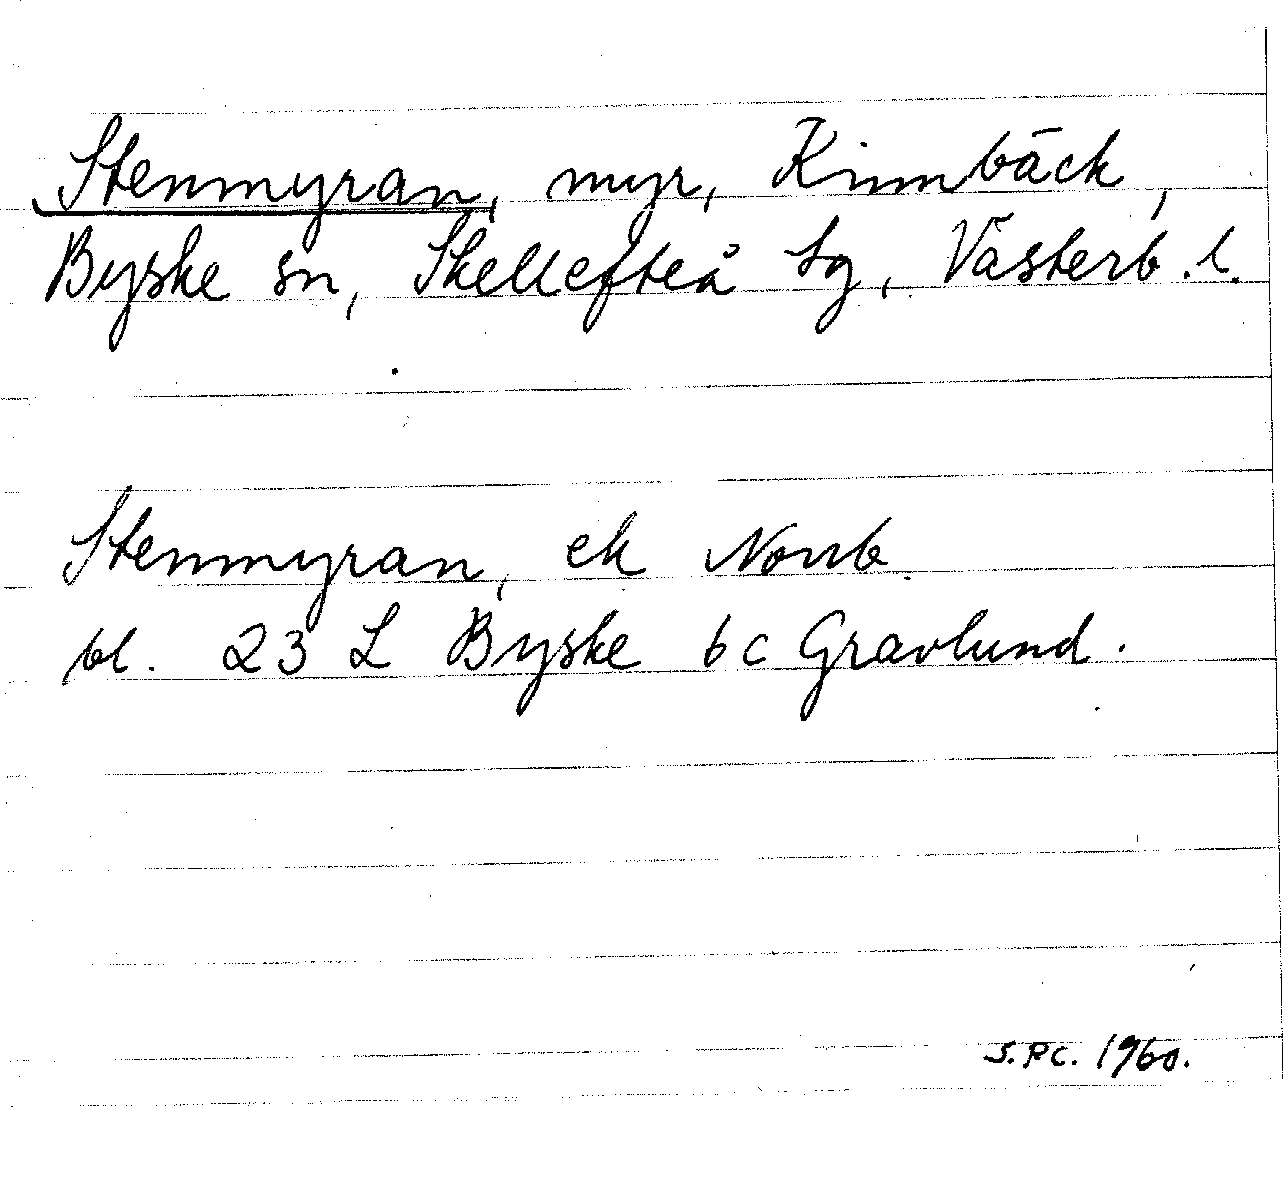 Stenmyran, myr, Kinnbäck,
Byske sn, Skellefteå tg, Västerb. l.
Stenmyran, ek Norrb.
bl. 23 L Byske 6 c Gravlund.
S.P.C. 1960.